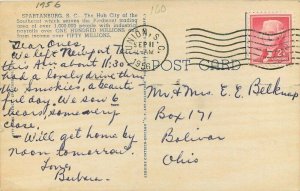 1956
160
SPARTANBURG, S. C. The Hub City of the
Southeast which serves the Piedmont trading
area of over 1,000,000 people with industrial
payrolls over ONE HUNDRED MILLIONS and
farm income over FIFTY MILLIONS.
Dear Ones:
We left Newport Tenn
this A.M. about 11:30
had a lovely drive thru
the Smokies, a beauti
ful day. We saw 6
bears, some very
close.
- Will get home by
noon tomorrow.
Love,
Barbara.
UNION, S.C.
SEP 11
AM
1956
POST CARD
2¢
Mr. & Mrs. E. E. Belknap
Box 171
Bolivar
Ohio